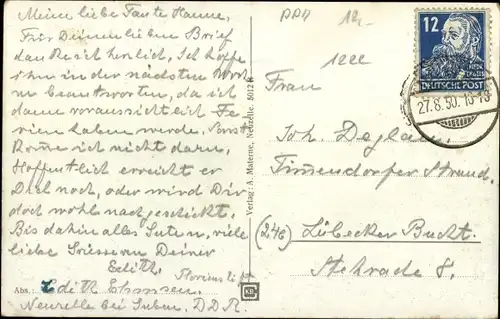 Meine liebe Tante Hanne,
Für Deinen lieben Brief
danke ich herzlich. Ich hoffe
ihn in der nächsten Woche
beantworten, da ich
dann voraussichtlich Fe-
rien haben werde. Sonst
komme ich nicht dazu.
Hoffentlich erreicht er
Dich noch, oder wird Dir
doch wohl nachgeschickt.
Bis dahin alles Guten, viele
liebe Grüsse von Deiner
Edith.
Abs.: Edith
Neuzelle bei Guben. DDR.
Verlag: A. Materne, Neuzelle. 5012
12
DEUTSCHE POST
27.8.50.
1222
Frau
Joh.
Timmendorfer Strand.
(24b) Lübecker Bucht.
8.